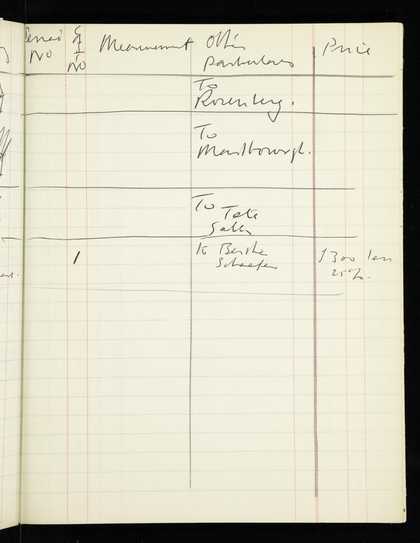 No
No
Measurement
Other
Particulars
Price
To
Rosenberg.
To
Marlborough.
To Tate
Gall
1
to Bertha
Schaefer
$300 less
25%.